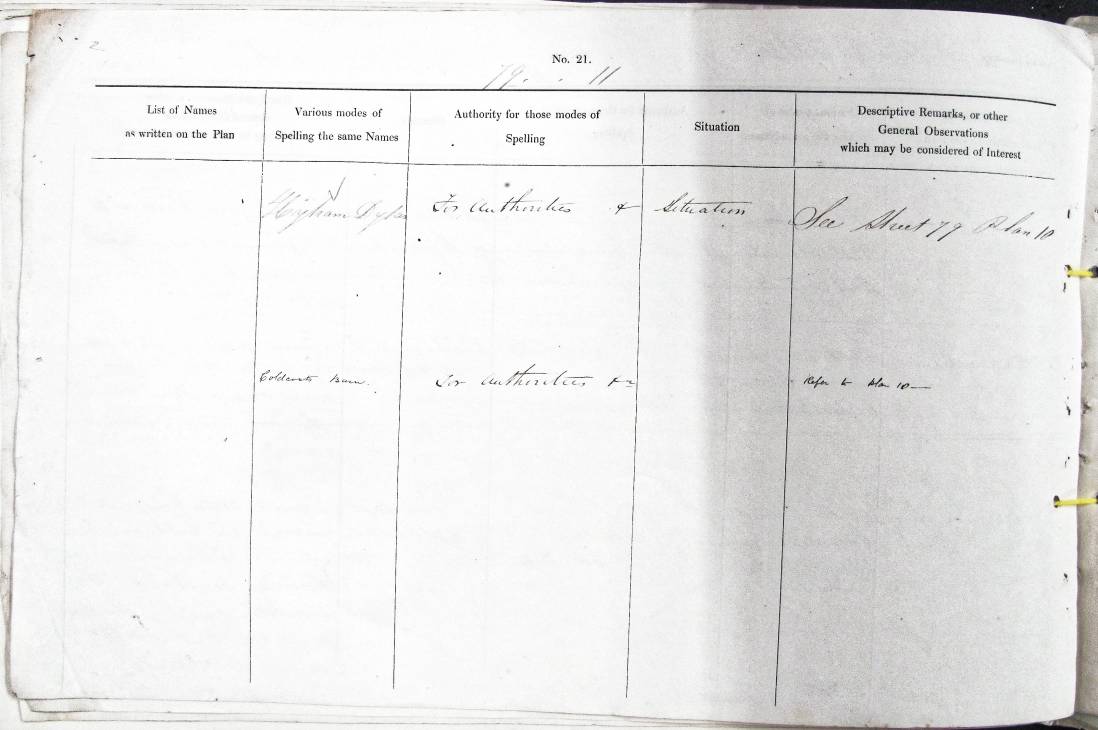 2
No. 21.
79 . . 11
List of Names
as written on the Plan
Various modes of
Spelling the same Names
Authority for those modes of
Spelling
Situation
Descriptive Remarks, or other
General Observations
which may be considered of Interest
Higham Dykes
For Authorities &
Situation
See Sheet 79 Plan 10
Coldcoats Barn.
For Authorities &c
Refer to Plan 10 —